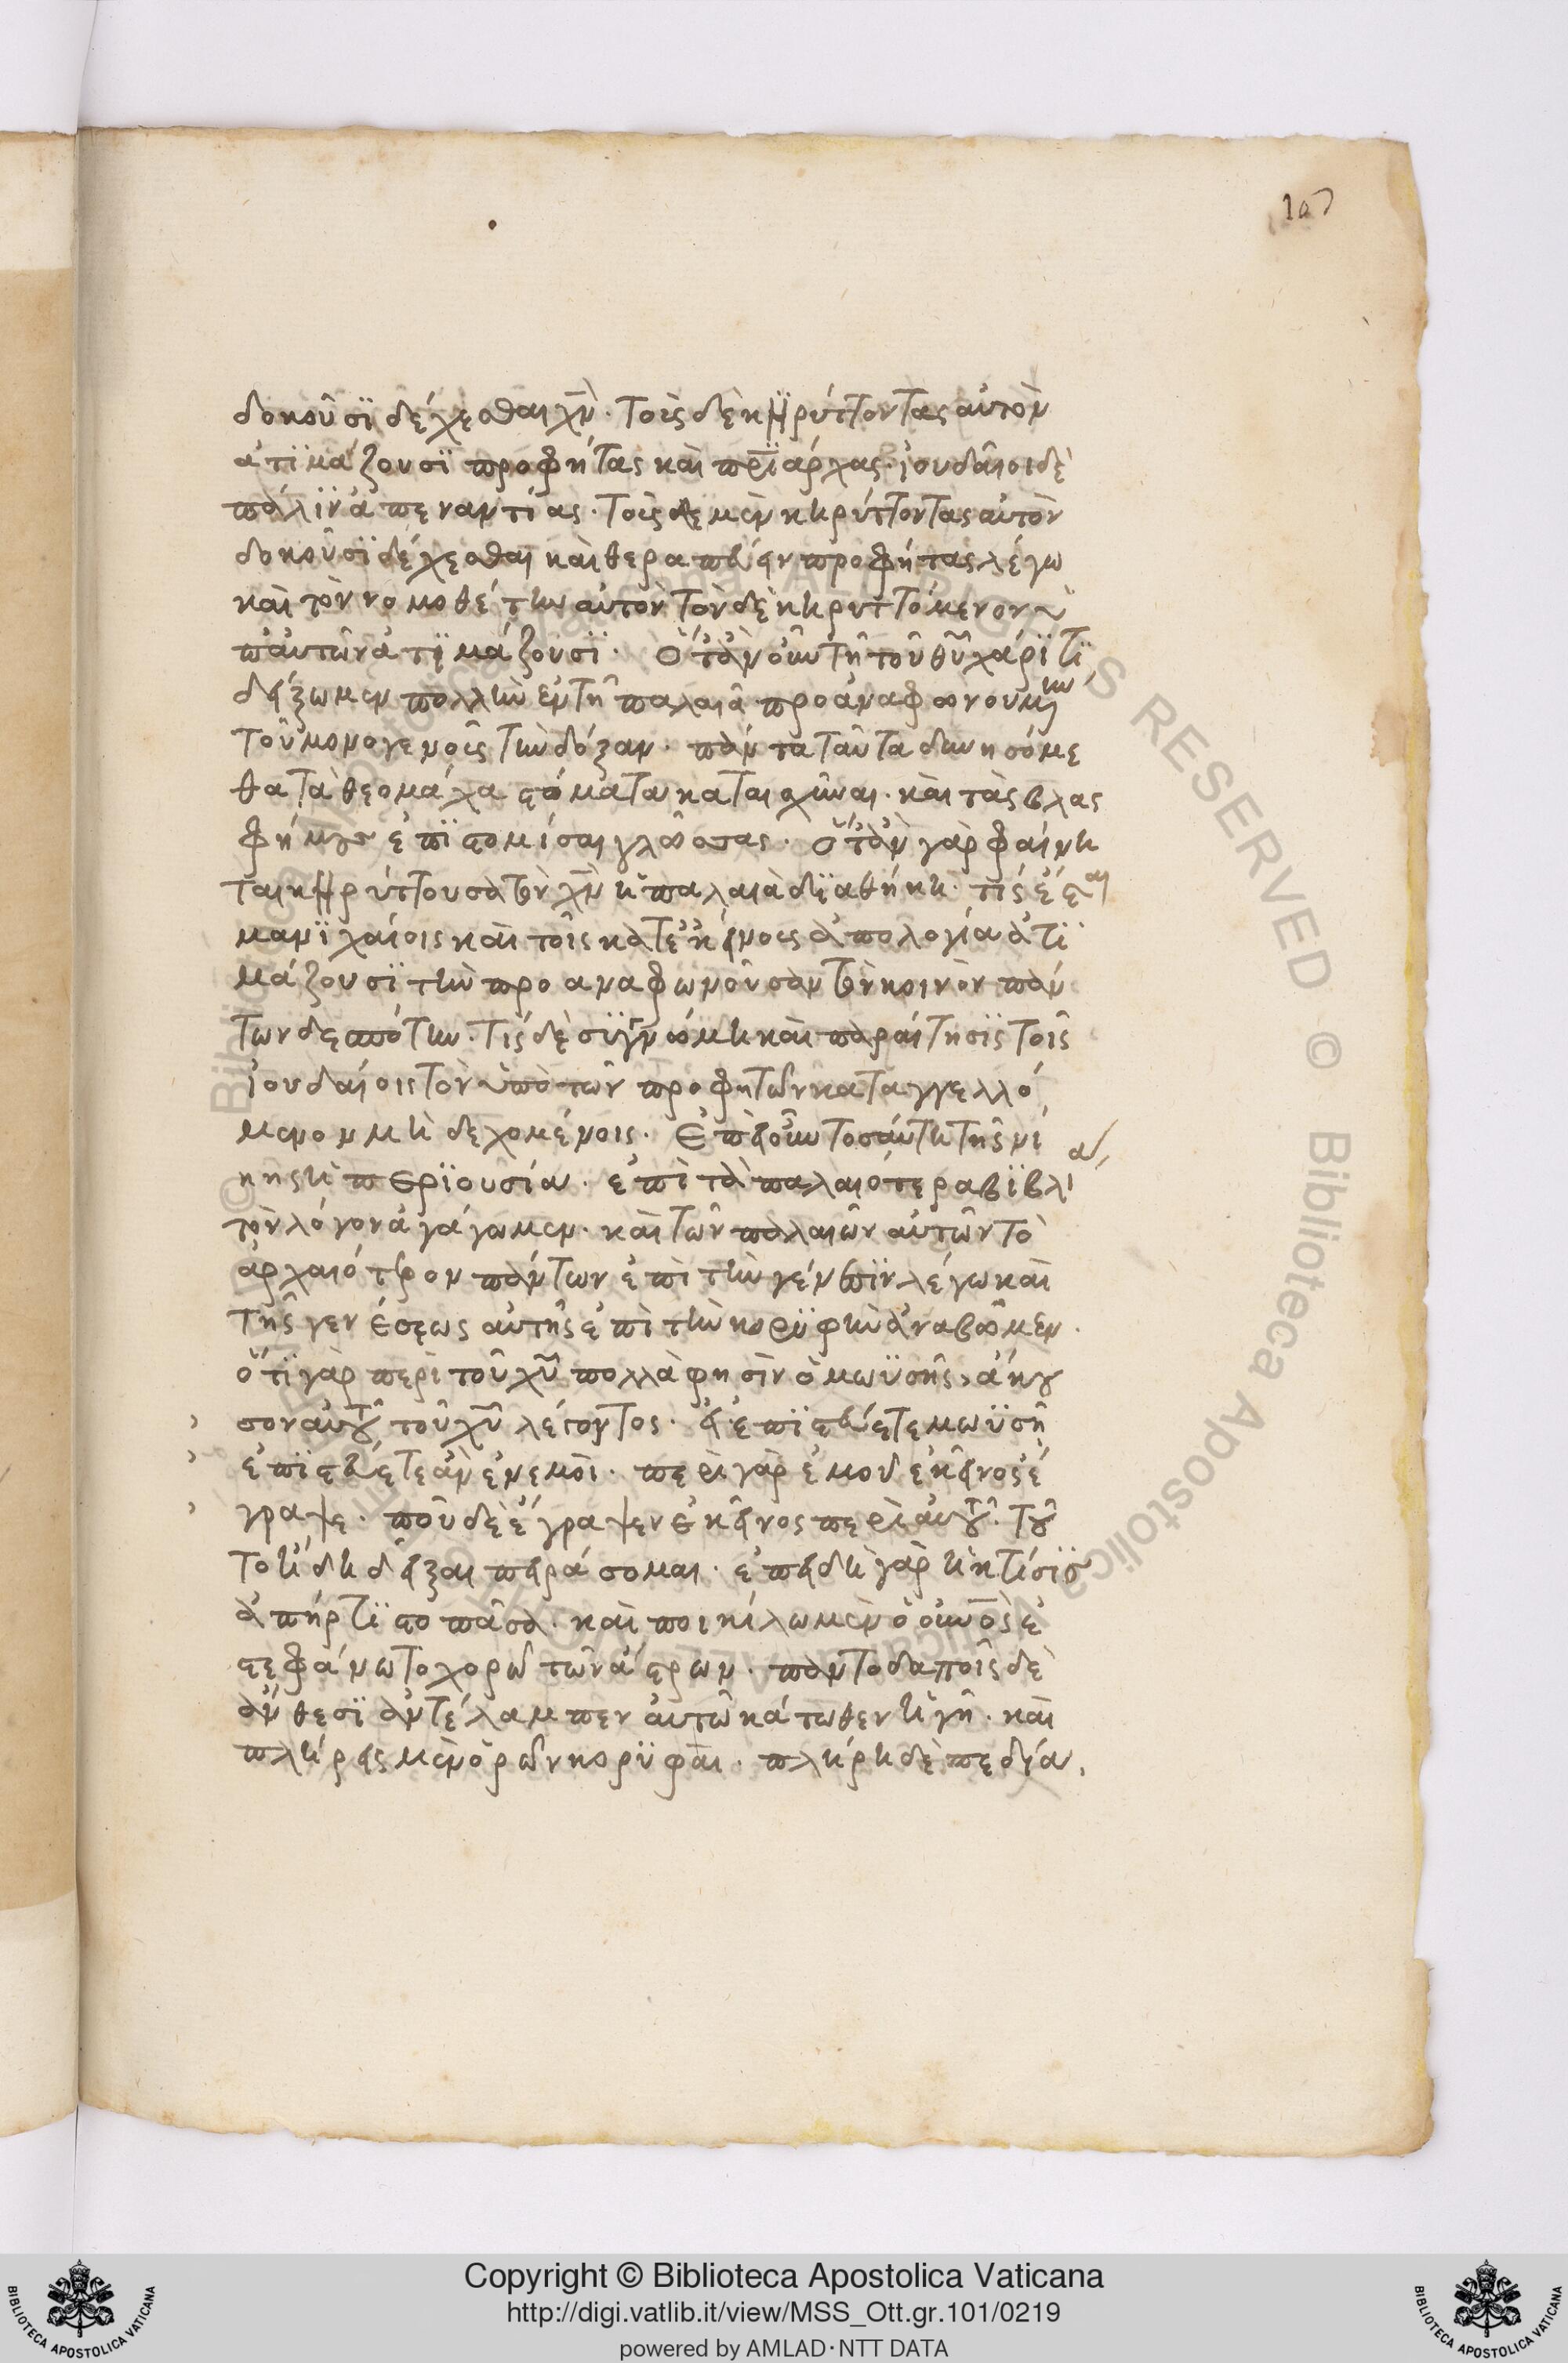 107
δοκοῦσϊ δέχεσθαι χν̄. τοὺς δὲ κηρύττοντας αὐτὸν
ἀτϊμάζουσϊ προφήτας καὶ πρϊάρχας. ἰουδαῖοι δὲ
πάλϊν ἀπεναντίας. τοὺς μὲν κηρύττοντας αὐτὸν
δοκοῦσϊ δέχεσθαι καὶ θεραπεύειν προφήτας λέγω
καὶ τὸν νομοθέτην αὐτὸν τὸν δὲ κηρυττόμενον ὑ
π' αὐτῶν ἀτϊμάζουσϊ. Ὅταν οὖν τῇ τοῦ θῦ χάρϊτϊ
δείξωμεν πολλὴν ἐν τῇ παλαιᾷ προαναφωνουμένην
τοῦ μονογενοῦς τὴν δόξαν. πάντα ταῦτα δυνησόμε
θα τὰ θεομάχα στόματα καταισχῦναι. καὶ τὰς βλας
φήμους ἐπϊστομίσαι γλώσσας. ὅταν γὰρ φαίνη
ται κηρύττουσα τὸν χν̄ ἡ παλαιὰ δϊαθήκη. τίς ἔσται
μανϊχαίοις καὶ τοῖς κατ' ἐκείνοις ἀπολογία ἀτϊ
μάζουσϊ τὴν προαναφωνοῦσαν τὸν κοινὸν πάν
των δεσπότην. τίς δὲ σϋγγνώμη καὶ παραίτησϊς τοῖς
ἰουδαίοις τὸν ὑπὸ τῶν προφητῶν καταγγελλό
μενον μὴ δεχομένοις. Ἐπεὶ οὖν τοσαύτη τῆς νί
κης ἡ περϊουσία. ἐπὶ τὰ παλαιότερα βϊβλία
τὸν λόγον ἀγάγωμεν. καὶ τῶν παλαιῶν αὐτῶν τὸ
ἀρχαιότερον πάντων ἐπὶ τὴν γένεσϊν λέγω καὶ
τῆς γενέσεως αὐτῆς ἐπὶ τὴν κορϋφὴν ἀναβῶμεν.
ὅτϊ γὰρ περὶ τοῦ χῦ πολλὰ φησὶν ὁ μωϋσῆς, ἄκου
σον αὐτοῦ τοῦ χῦ λέγοντος. εἰ ἐπϊστεύετε μωϋσῆ
ἐπϊστεύετε ἂν ἐν ἐμοὶ. περὶ γὰρ ἐμοῦ ἐκεῖνος ἔ
γραψε. ποῦ δὲ ἔγραψεν ἐκεῖνος περὶ αὐτοῦ. τοῦ
το ἤδη δεῖξαι πειράσομαι. ἐπειδὴ γὰρ ἡ κτίσϊς
ἀπήρτϊστο πᾶσα. καὶ ποικίλω μὲν ὁ οὐν̄ος ἐ
στεφάνωτο χορῶ τῶν ἀστέρων. παντοδαποῖς δὲ
ἄνθεσϊ ἀντέλαμπεν αὐτῶ κάτωθεν ἡ γῆ. καὶ
πλήρεις μὲν ὀρῶν κορϋφαὶ. πλήρη δὲ πεδία,
Copyright © Biblioteca Apostolica Vaticana
http://digi.vatlib.it/view/MSS_Ott.gr.101/0219
powered by AMLAD·NTT DATA